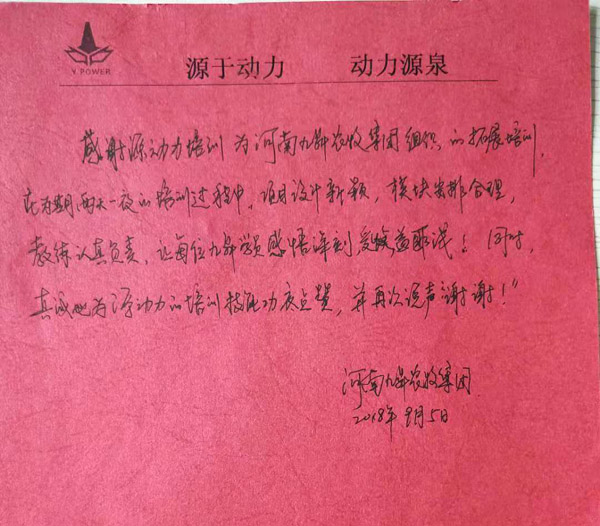 Y POWER
源于动力 动力源泉
感谢源动力培训为河南九鼎农牧集团组织的拓展培训,
在为期两天一夜的培训过程中,项目设计新颖,模块安排合理,
教练认真负责,让每位九鼎学员感悟深刻受益匪浅!同时,
真诚地为源动力的培训技能功底点赞,并再次说声谢谢!"
河南九鼎农牧集团
2018年9月5日